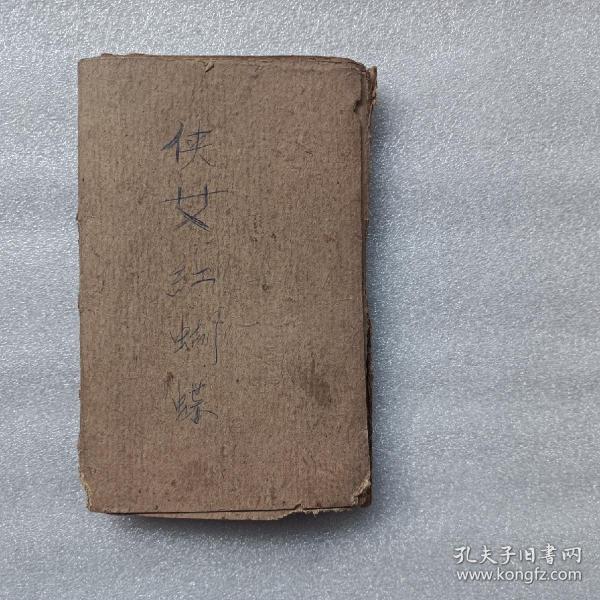 侠女红蝴蝶
孔夫子旧書网
www.kongfz.com